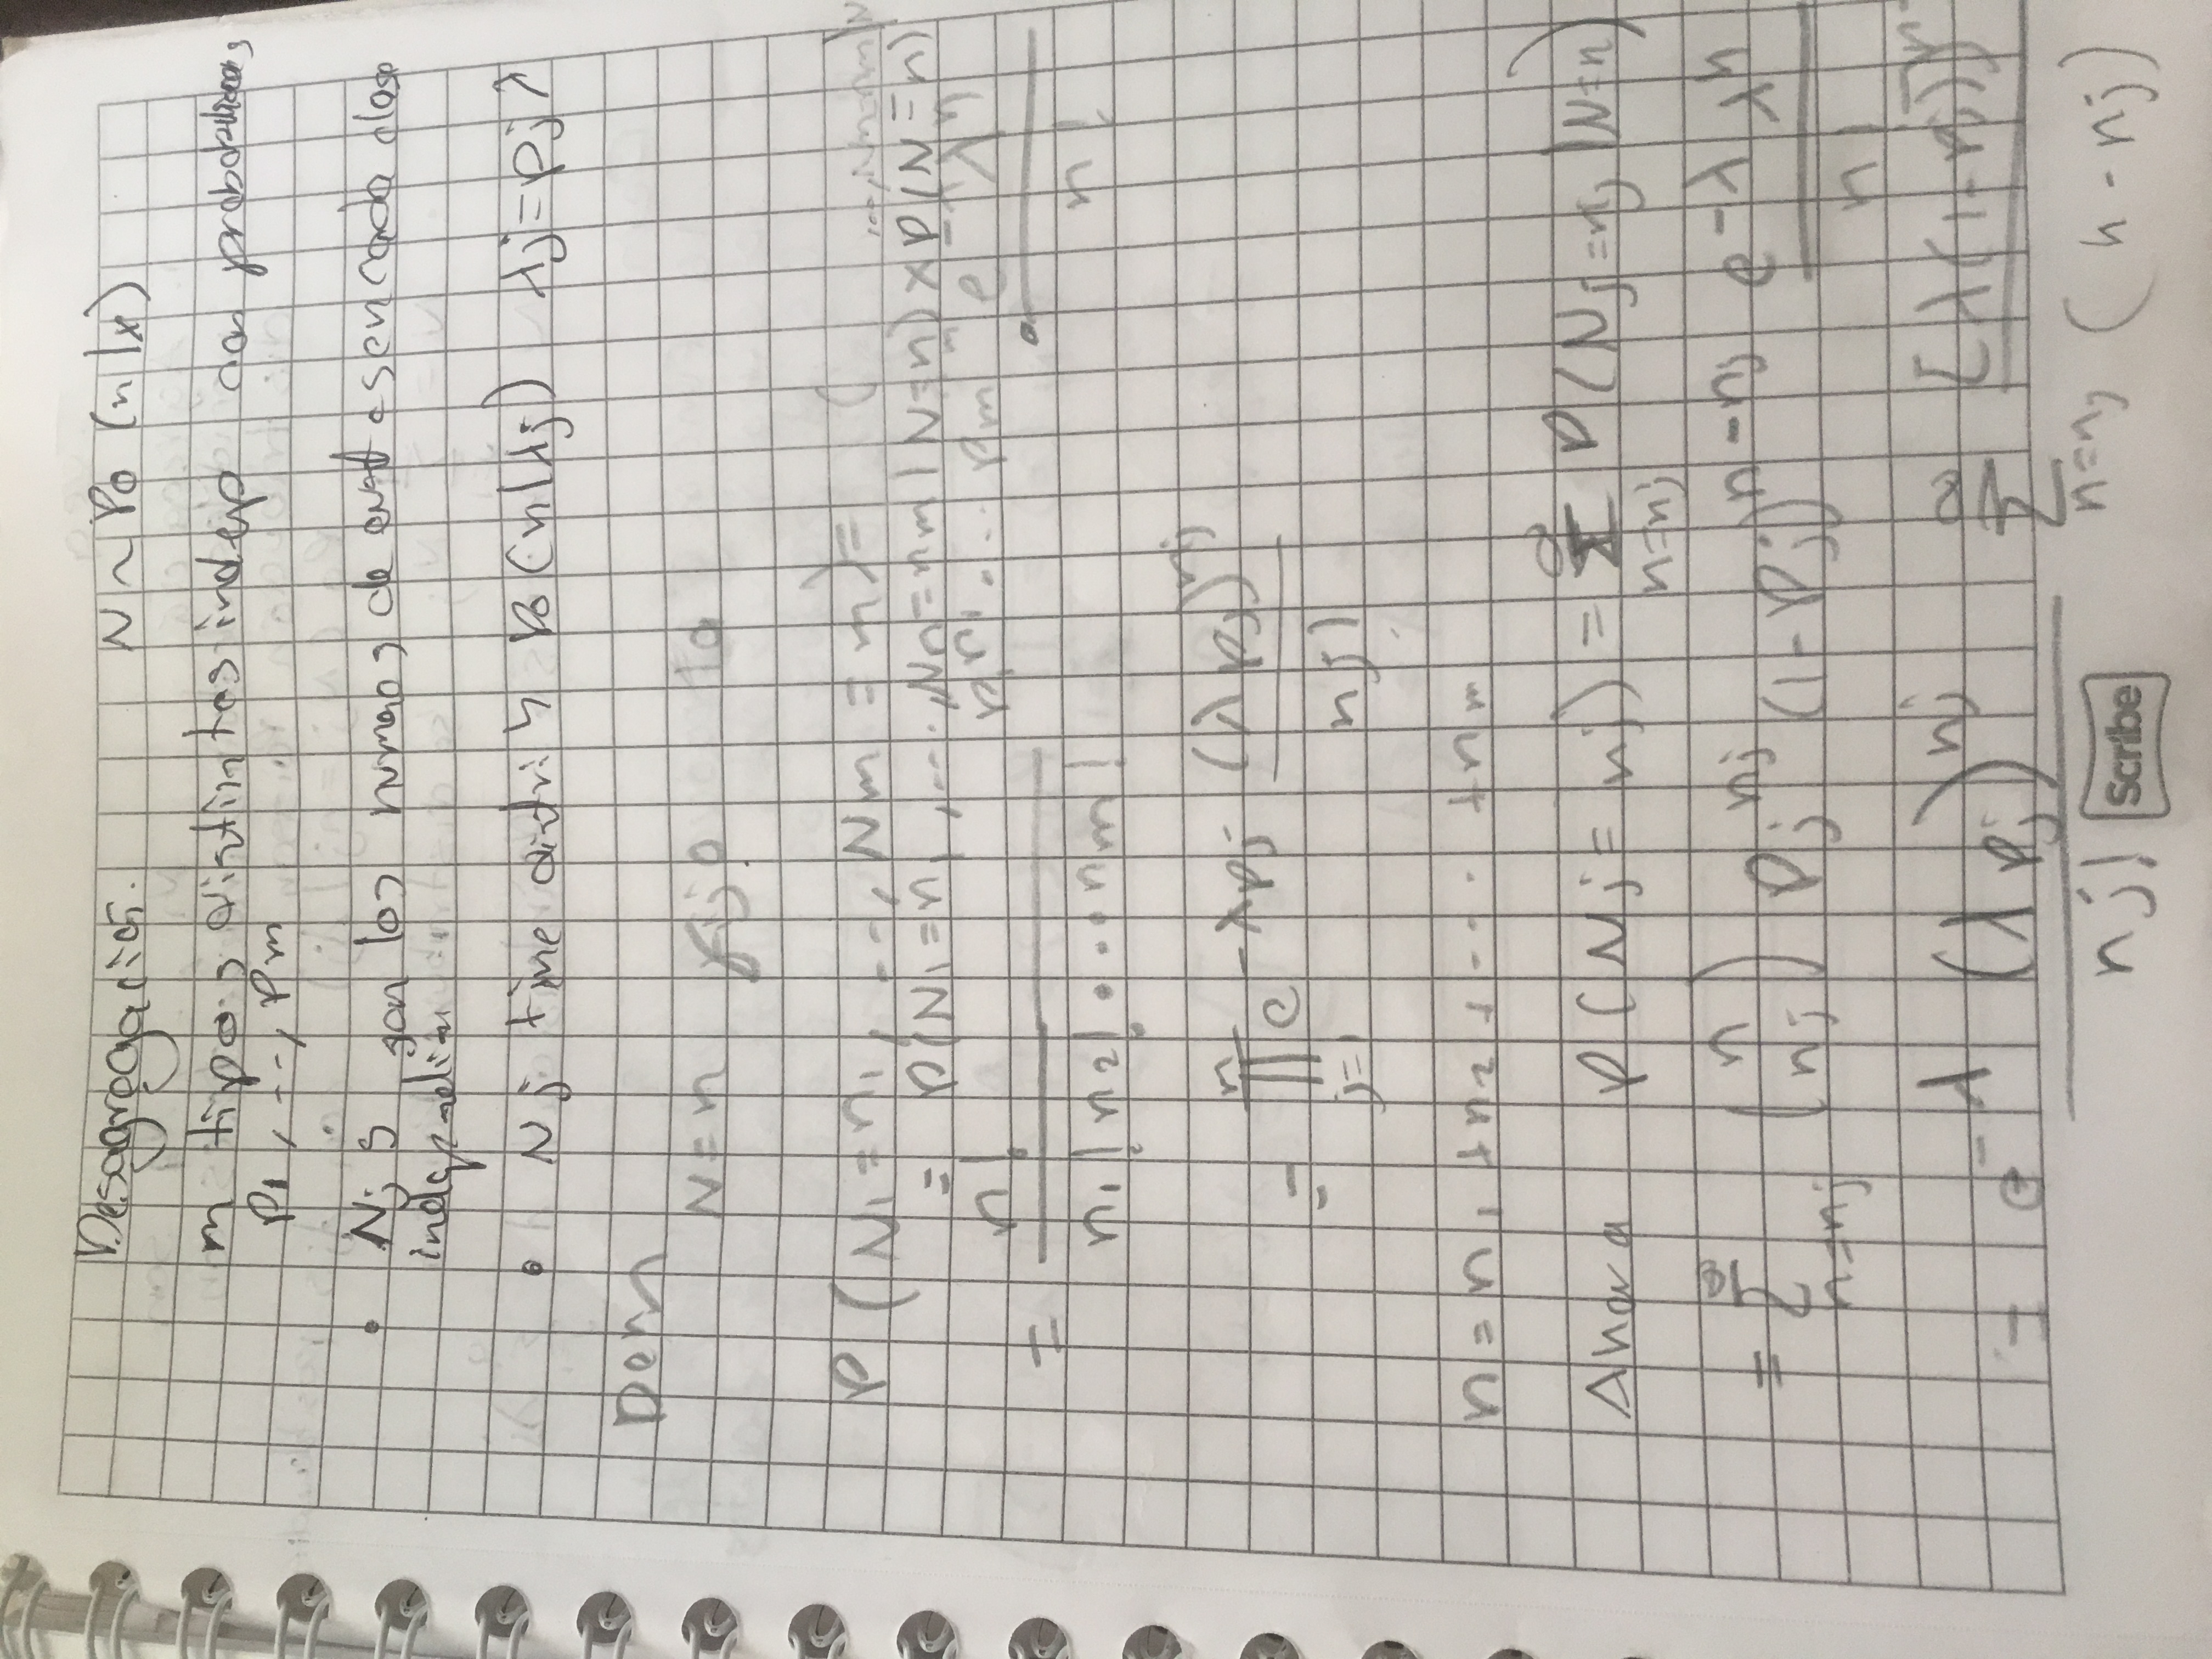 Desagregación. N ~ Po (n | λ)
m tipos distintos indep con probabilidades
p1, ..., pm
• Nj s son los numeros de event es en cada clase
• Nj tiene distrib Po (n | λj) λj = pj λ
Dem
N = n fijo
P (N1 = n1, ..., Nm = m) = (
..., Nm = nm | N
= P(N1 = n1, ..., Nn = nm | N = n) x P(N = n)
= n! / n1! n2! ... nm! p1^n1 ... pm^n • e^-λ λ^n / n!
= ∏_{j=1}^{n} e^{-λpj} (λpj)^nj / nj!
n = n1 + n2 + ... + nm
Ahora P(Nj = nj) = Σ_{n=nj}^{∞} P(Nj = nj | N = n)
= Σ_{n=nj}^{∞} (n nj) pj^nj (1 - pj)^{n - nj} e^{-λ} λ^n / n!
= e^{-λ} (λ pj)^nj / nj! Σ_{n=nj}^{∞} [λ(1 - pj)]^{n- / (n - nj)
Scribe